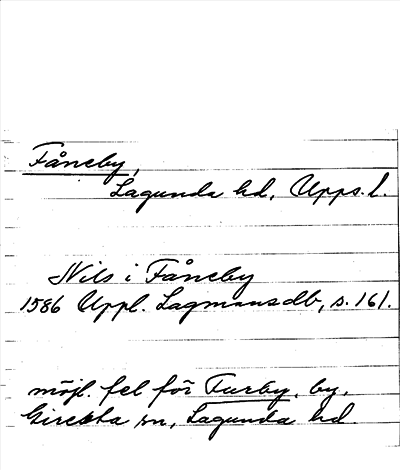 Fåneby,
Lagunda hd, Upps. l.
Nils i Fåneby
1586 Uppl. Lagmansdb, s. 161.
möjl. fel för Turby, by,
Giresta sn, Lagunda hd.